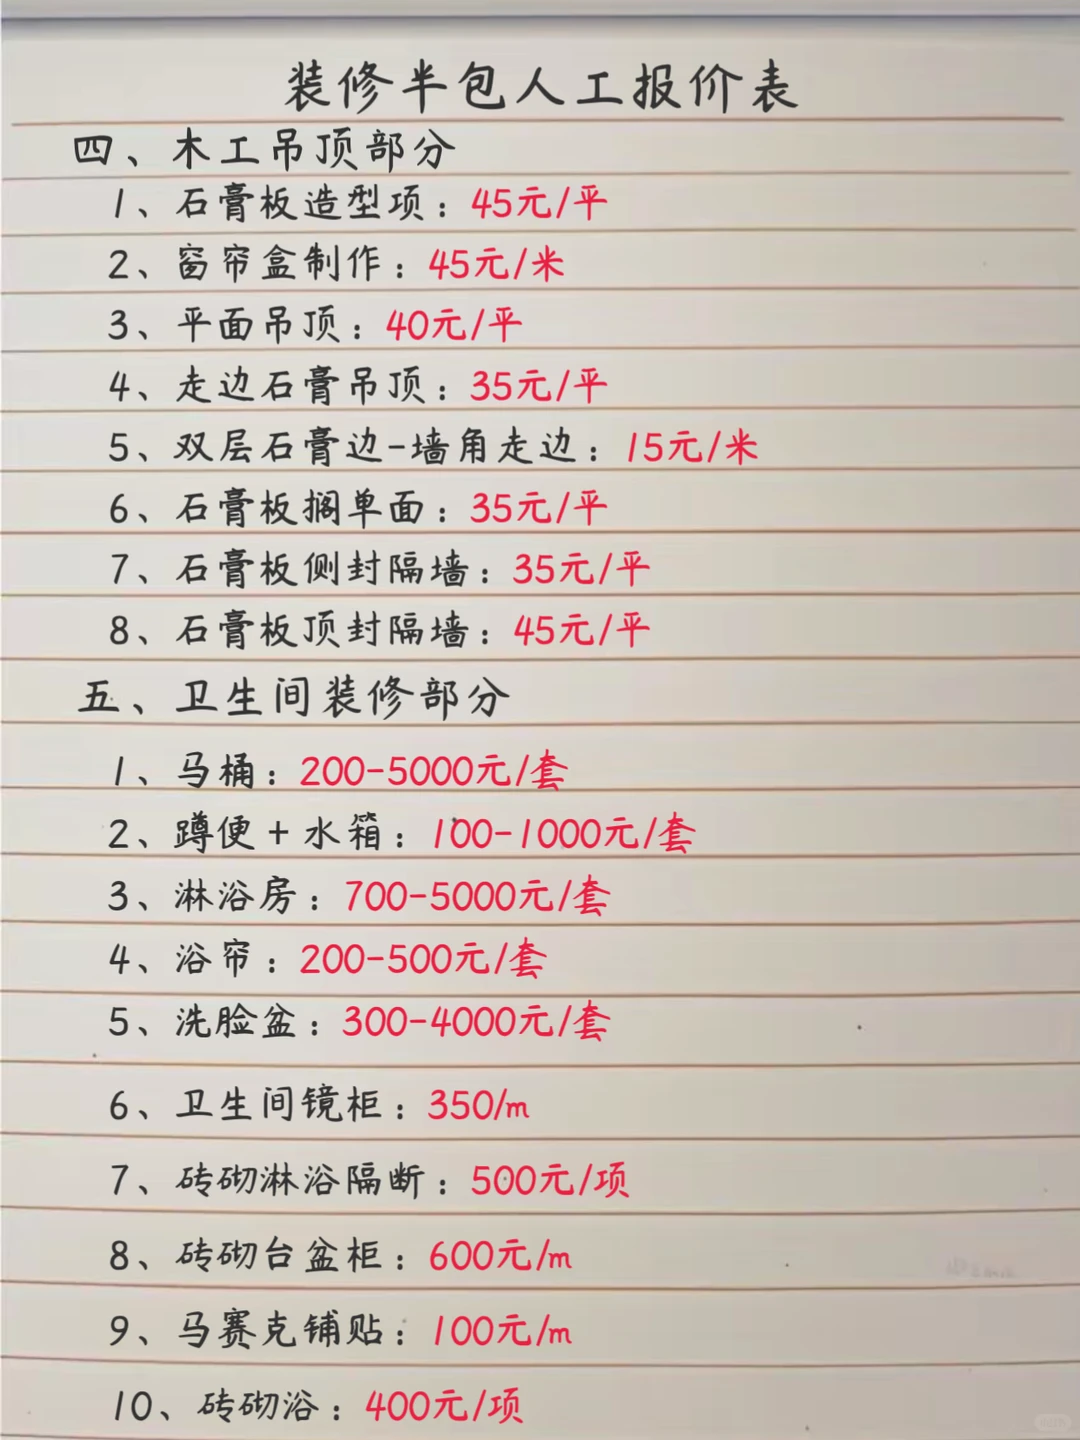 装修半包人工报价表
四、木工吊顶部分
1、石膏板造型项：45元/平
2、窗帘盒制作：45元/米
3、平面吊顶：40元/平
4、走边石膏吊顶：35元/平
5、双层石膏边-墙角走边：15元/米
6、石膏板搁单面：35元/平
7、石膏板侧封隔墙：35元/平
8、石膏板顶封隔墙：45元/平
五、卫生间装修部分
1、马桶：200-5000元/套
2、蹲便+水箱：100-1000元/套
3、淋浴房：700-5000元/套
4、浴帘：200-500元/套
5、洗脸盆：300-4000元/套
6、卫生间镜柜：350/m
7、砖砌淋浴隔断：500元/项
8、砖砌台盆柜：600元/m
9、马赛克铺贴：100元/m
10、砖砌浴：400元/项